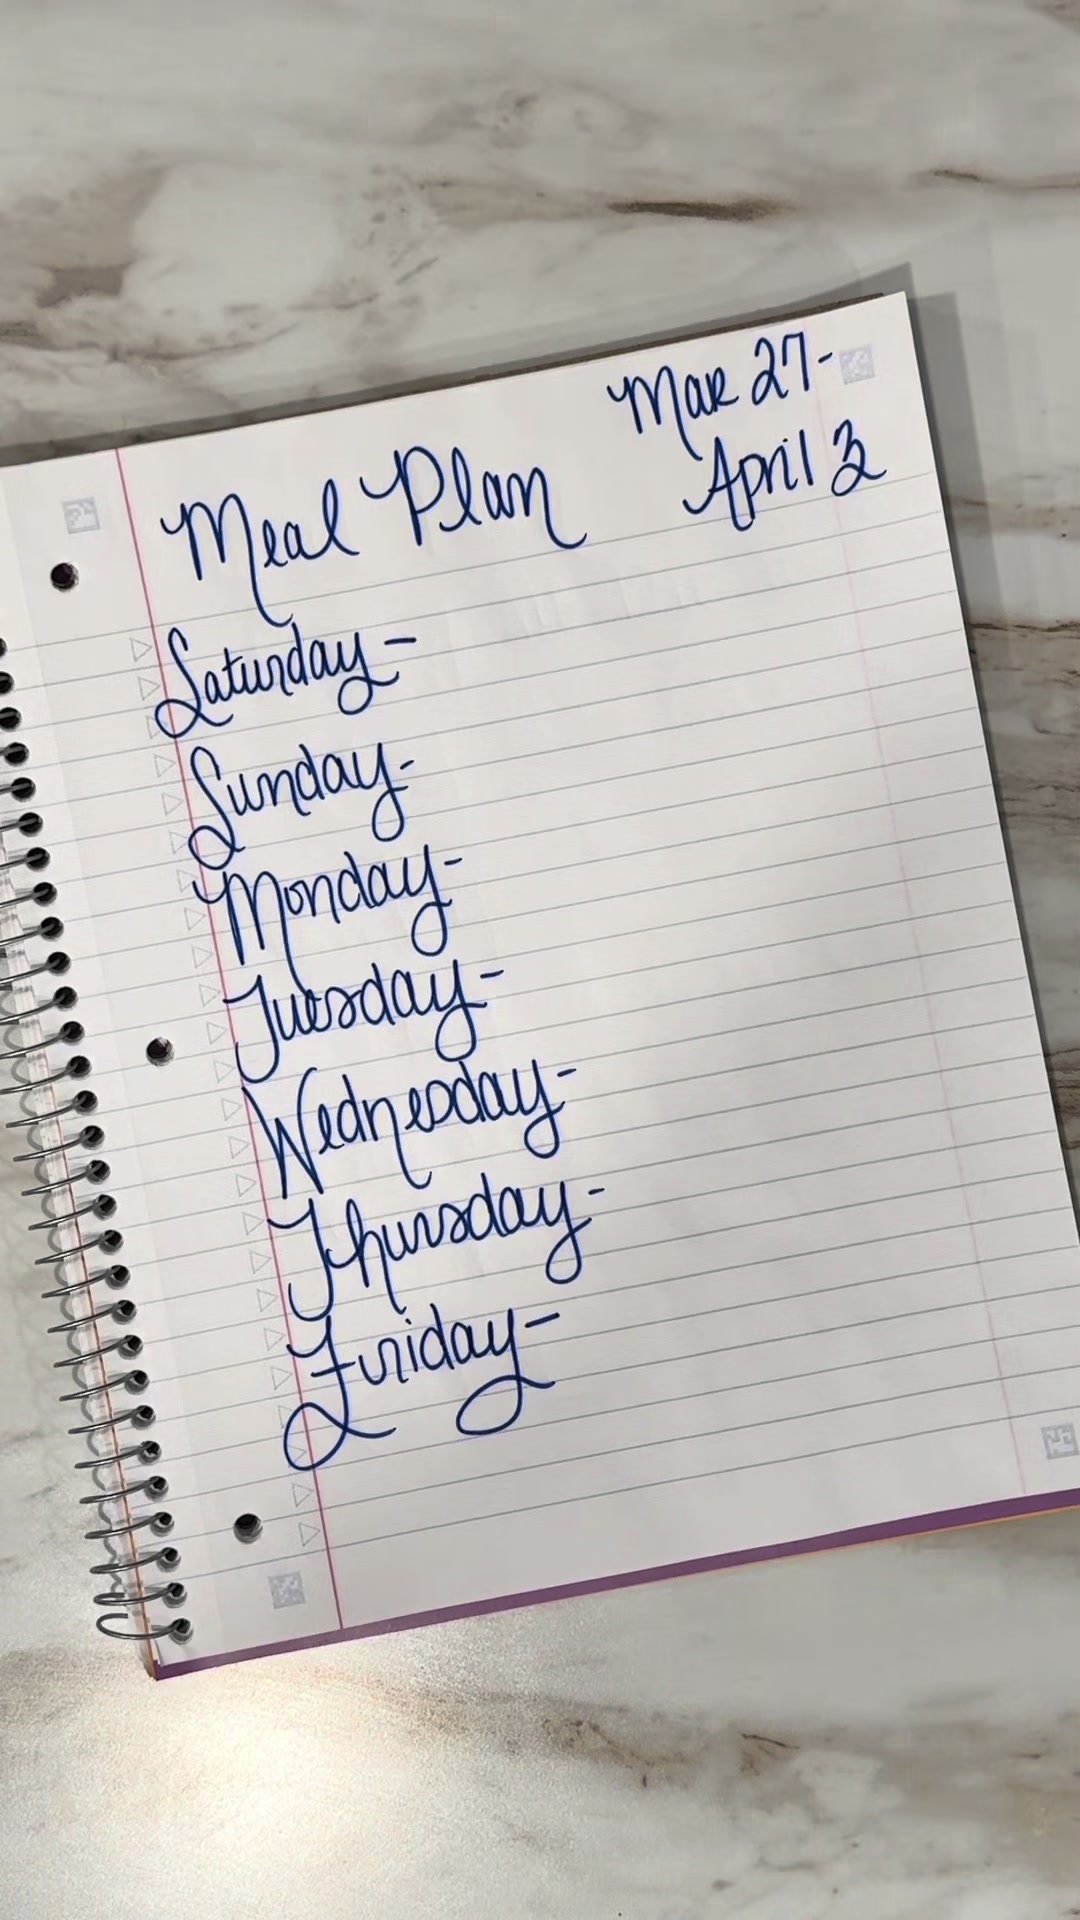 Mar 27-
April 3
Meal Plan
Saturday -
Sunday-
Monday-
Tuesday-
Wednesday-
Thursday-
Friday-